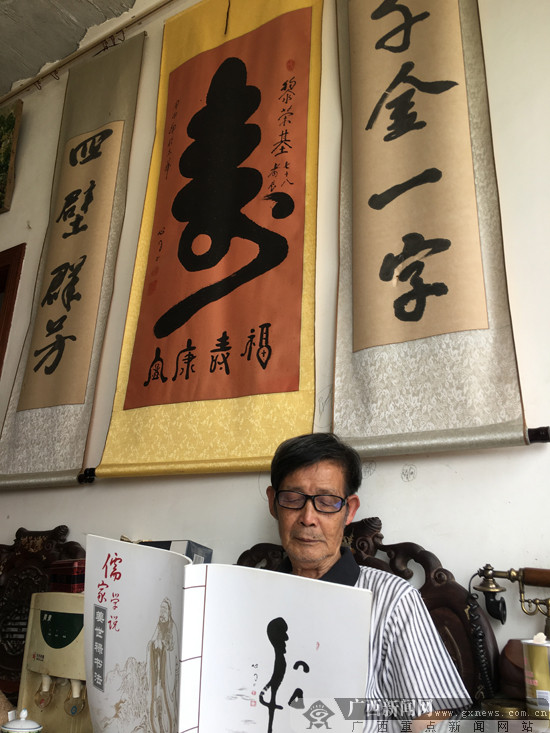 千金一字
黎荣基七十八
寿
福寿康宁
四壁群芳
儒家学说
书法
广西新闻网 www.gxnews.com.cn
广西重点新闻网站